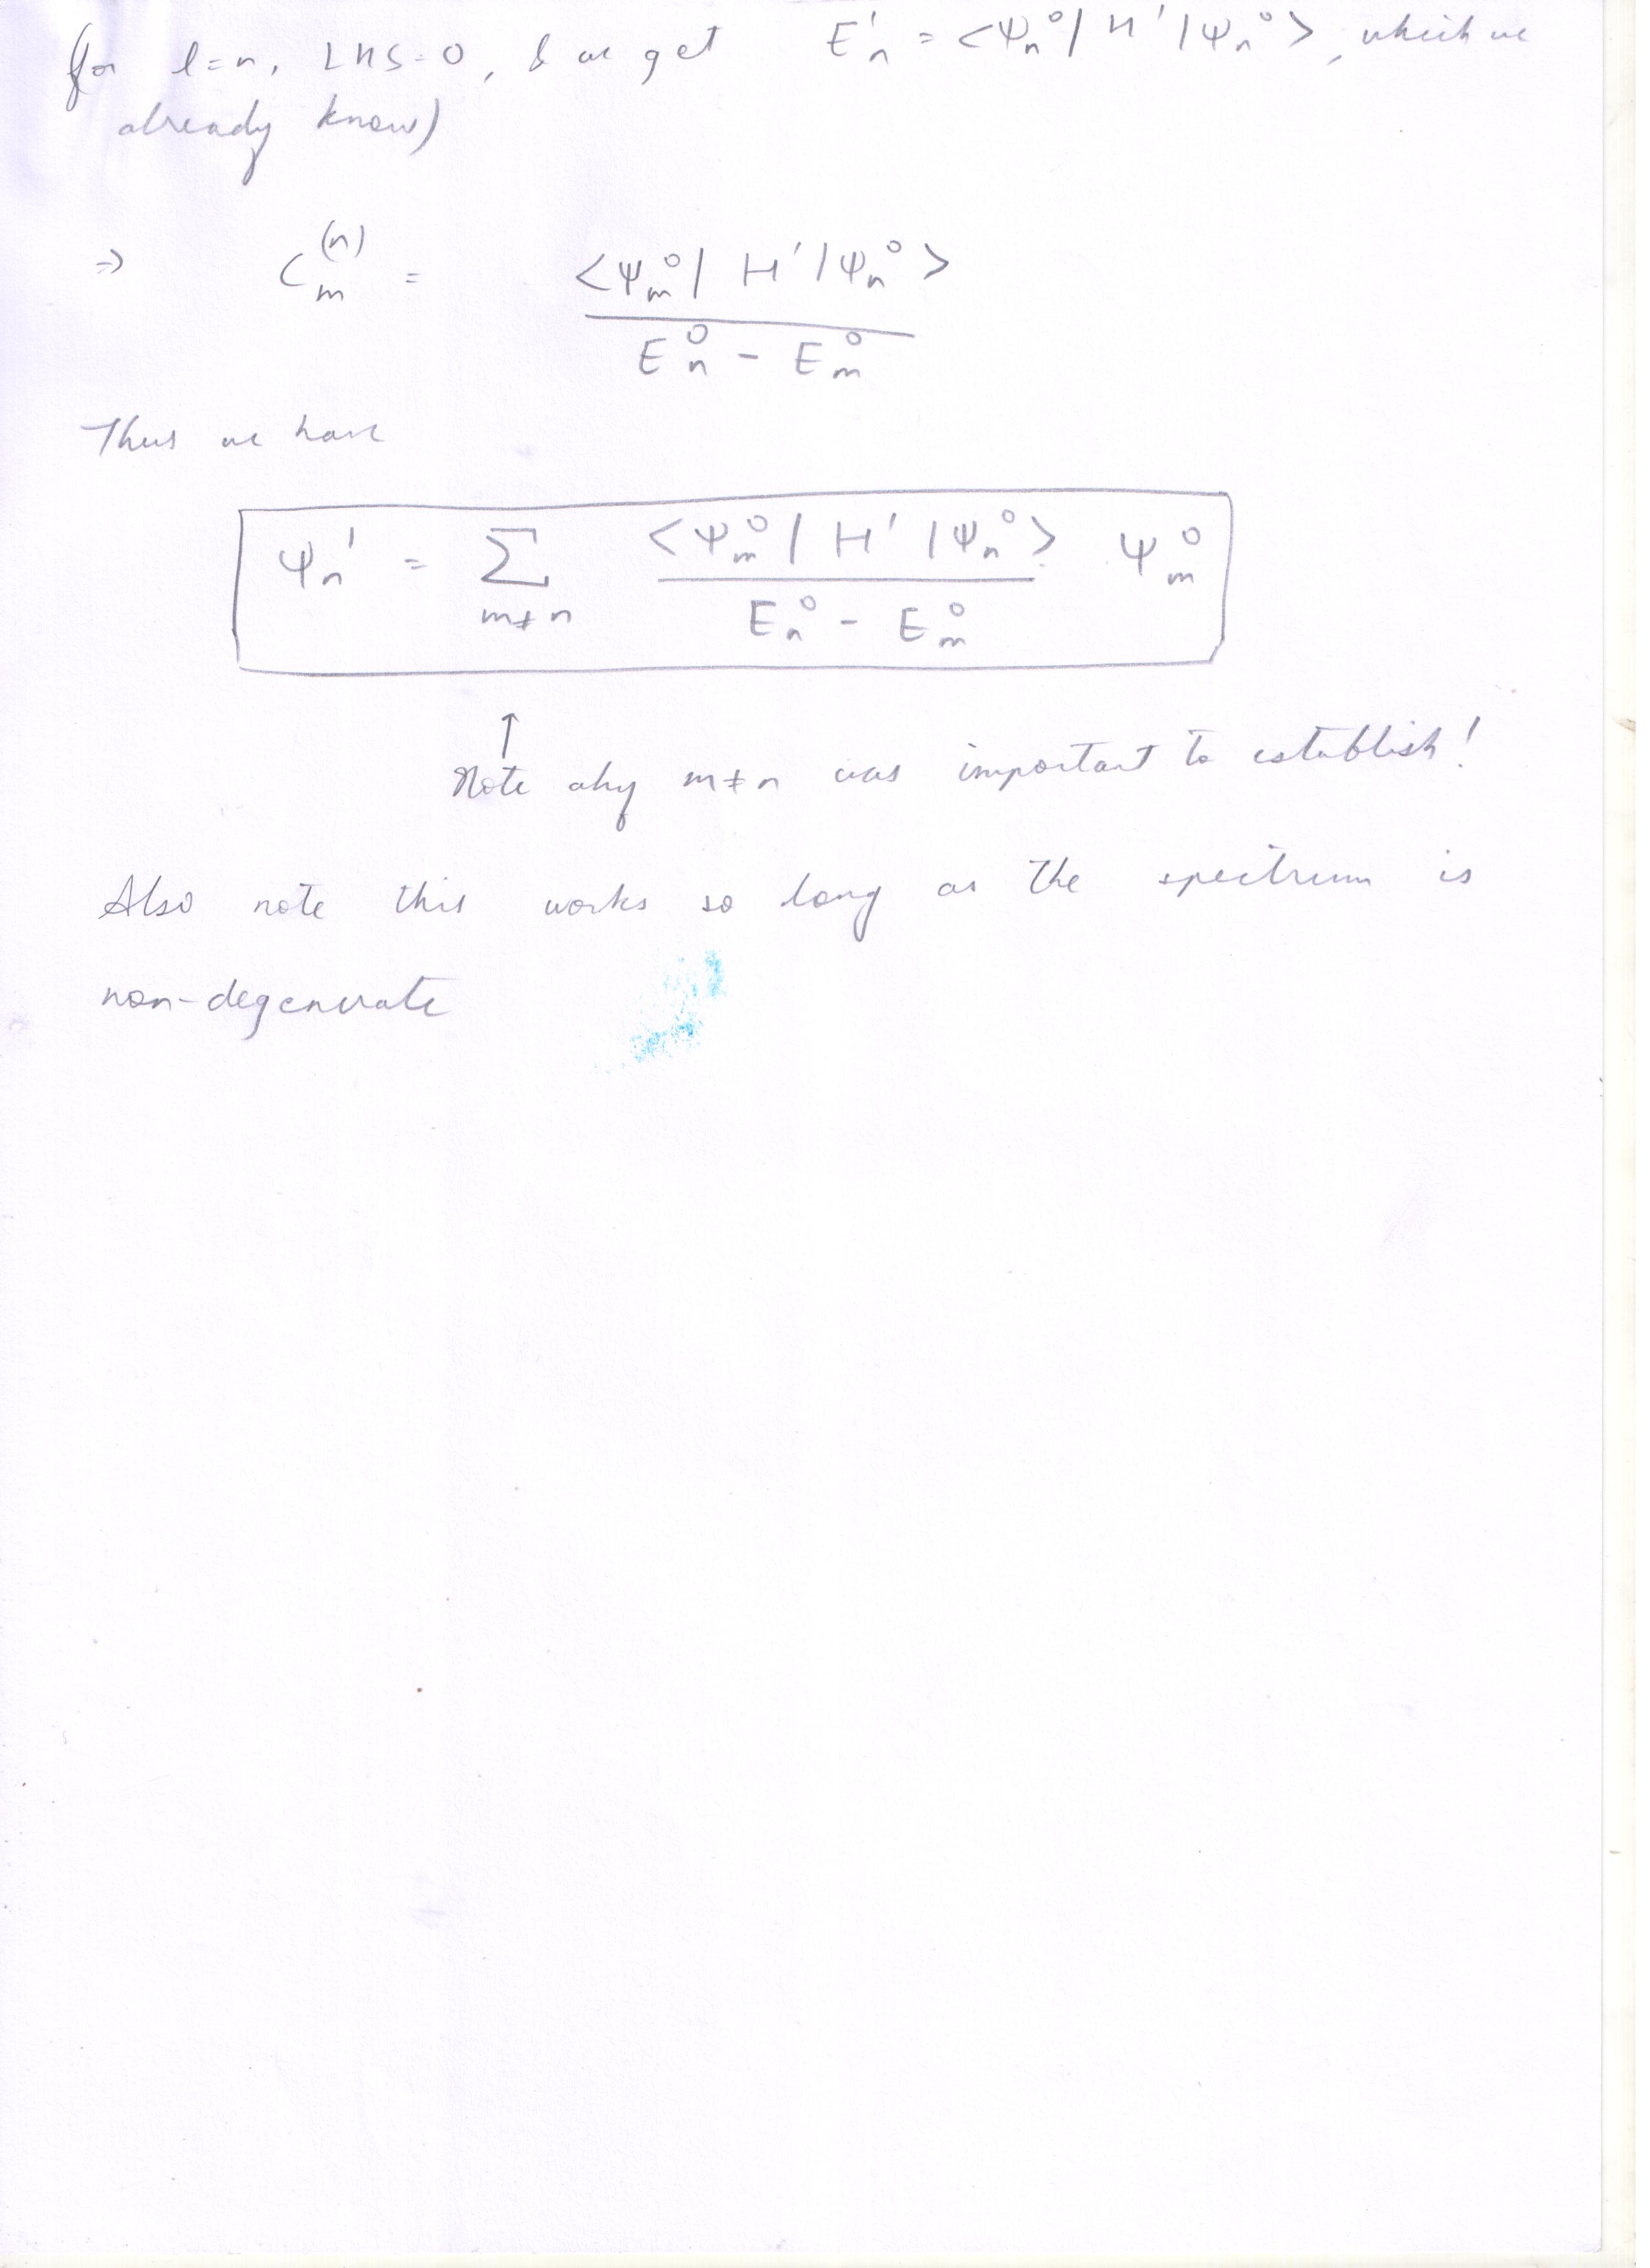 for l=n, LHS=0, & we get E'ₙ = <Ψₙ⁰| H' |Ψₙ⁰>, which we
already know)
⇒ Cₘ⁽ⁿ⁾ = <Ψₘ⁰| H' |Ψₙ⁰>
Eₙ⁰ - Eₘ⁰
Thus we have
Ψₙ' = Σ <Ψₘ⁰| H' |Ψₙ⁰> Ψₘ⁰
m≠n Eₙ⁰ - Eₘ⁰
↑
Note why m≠n was important to establish!
Also note this works so long as the spectrum is
non-degenerate